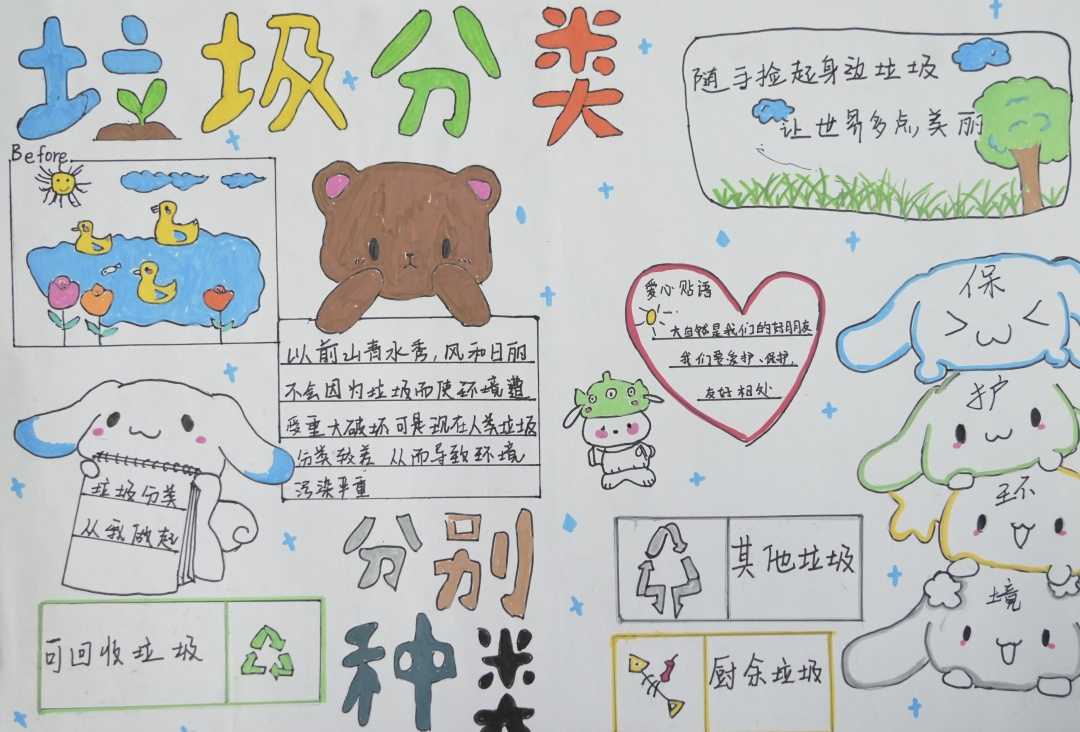 垃圾分类
随手捡起身边垃圾
让世界多点,美丽
Before
以前山青水秀,风和日丽
不会因为垃圾而使环境遭
受重大破坏可是现在人类垃圾
份类较差 从而导致环境
污染严重
爱心贴语
大自然是我们的好朋友
我们要爱护、保护,
友好相处
保
护
环
境
垃圾分类
从我做起
分别
种类
可回收垃圾
其他垃圾
厨余垃圾